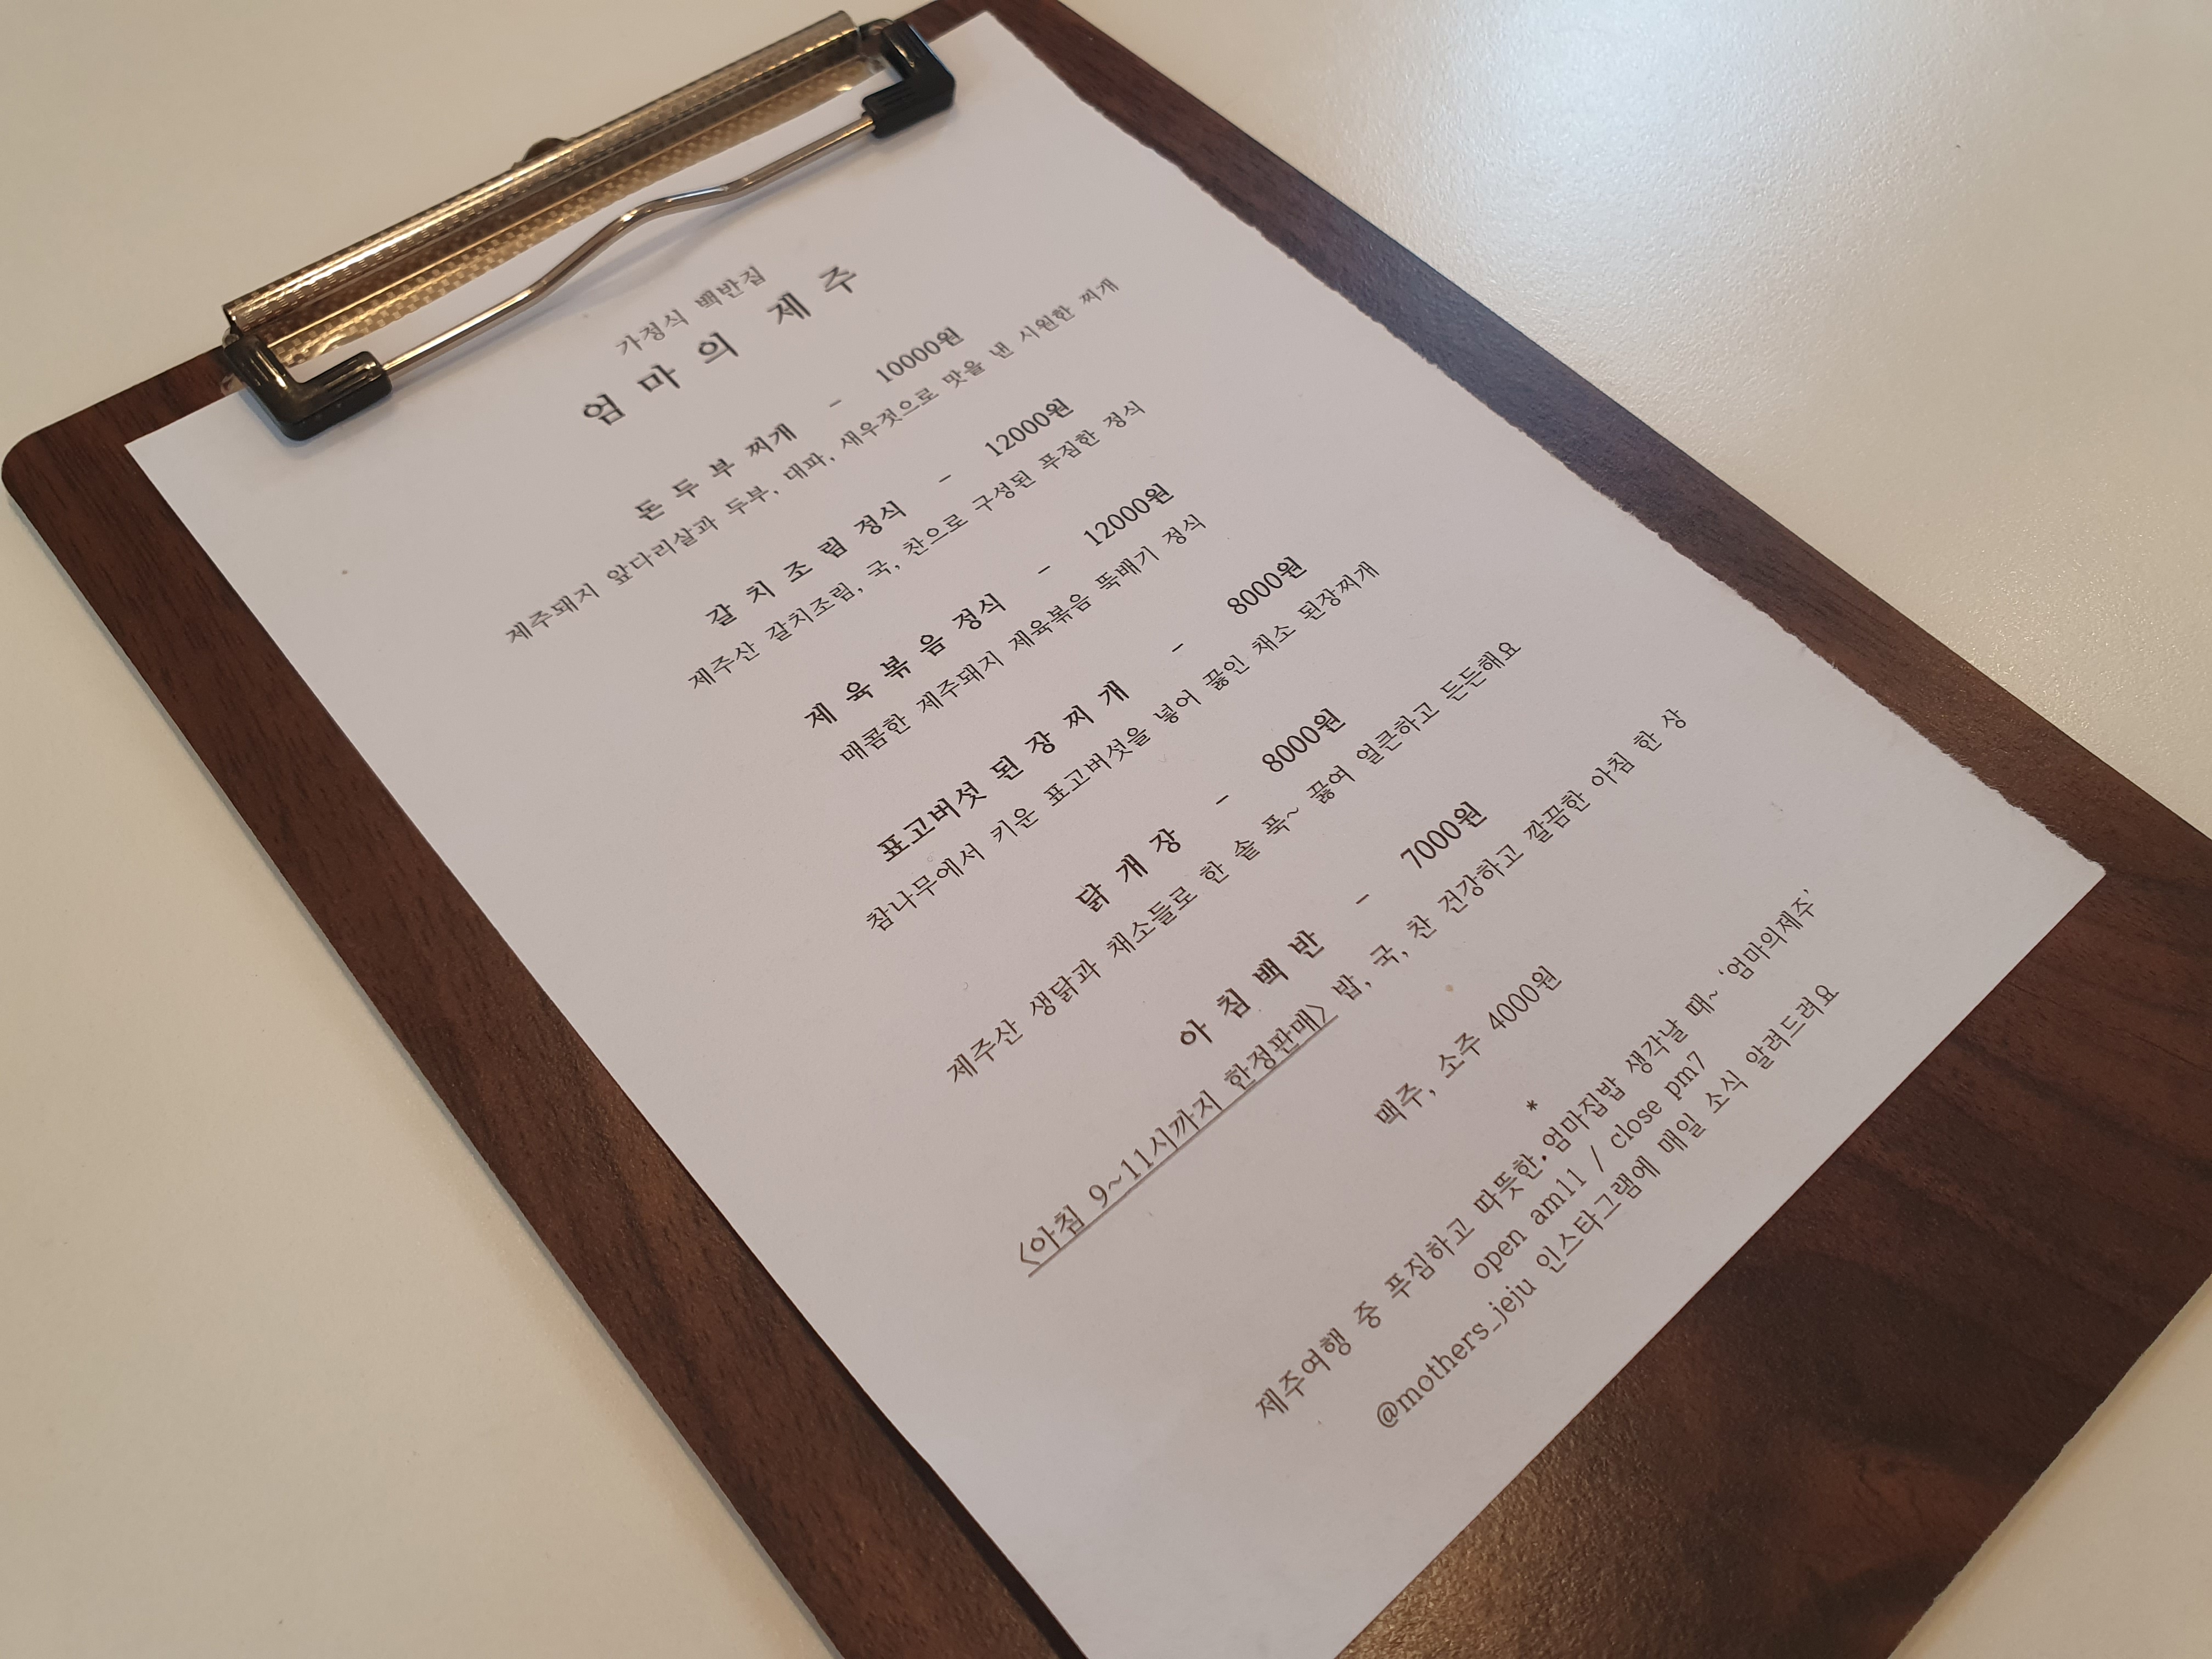 가정식 백반집
엄마의 제주
돈두부 찌개 - 10000원
제주돼지 앞다리살과 두부, 대파, 새우젓으로 맛을 낸 시원한 찌개
갈치조림 정식 - 12000원
제주산 갈치조림, 국, 찬으로 구성된 푸짐한 정식
제육볶음 정식 - 12000원
매콤한 제주돼지 제육볶음 뚝배기 정식
표고버섯 된장찌개 - 8000원
참나무에서 키운 표고버섯을 넣어 끓인 채소 된장찌개
닭개장 - 8000원
제주산 생닭과 채소들로 한 솥 푹~ 끓여 얼큰하고 든든해요
아침백반 - 7000원
<아침 9~11시까지 한정판매> 밥, 국, 찬 건강하고 깔끔한 아침 한 상
맥주, 소주 4000원
*
제주여행 중 푸짐하고 따뜻한 엄마집밥 생각날 때~ '엄마의제주'
open am11 / close pm7
@mothers_jeju 인스타그램에 매일 소식 알려드려요